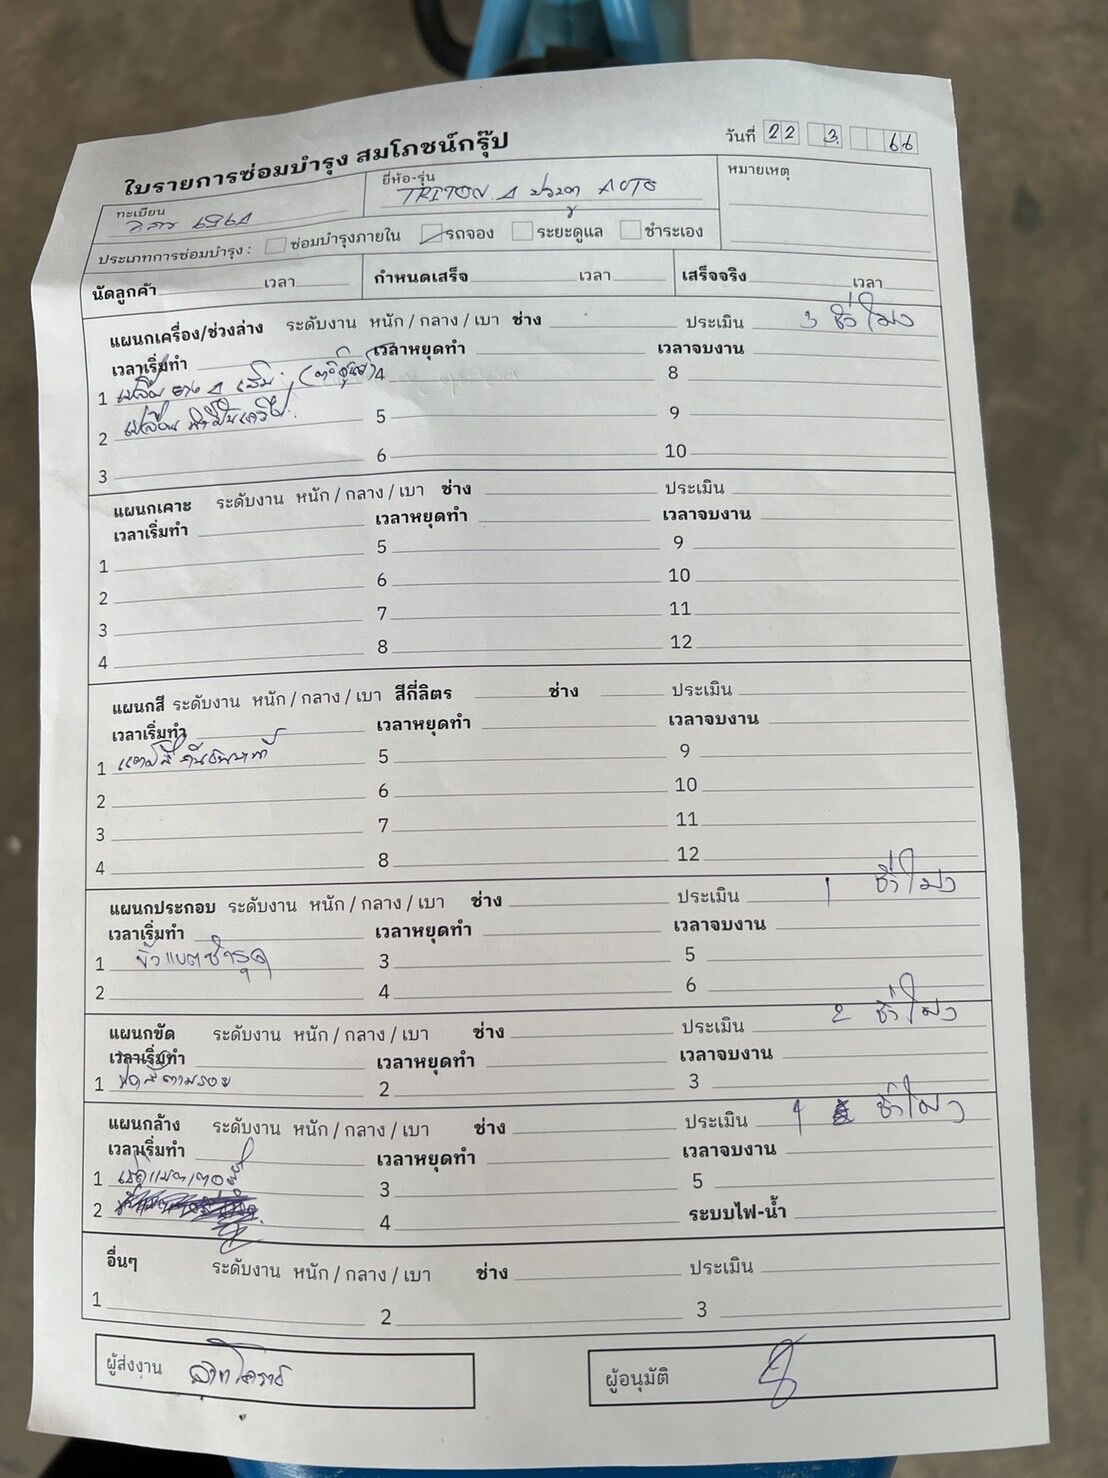 ใบรายการซ่อมบำรุง สมโภชน์กรุ๊ป
วันที่ 22 3 66
ทะเบียน
ยี่ห้อ-รุ่น TRITON 4 ประตู AUTO
หมายเหตุ
ประเภทการซ่อมบำรุง : ซ่อมบำรุงภายใน รถจอง ระยะดูแล ชำระเอง
นัดลูกค้า เวลา กำหนดเสร็จ เวลา เสร็จจริง เวลา
แผนกเครื่อง/ช่วงล่าง ระดับงาน หนัก / กลาง / เบา ช่าง ประเมิน 3 ชั่วโมง
เวลาเริ่มทำ เวลาหยุดทำ เวลาจบงาน
1 เปลี่ยน ยาง 4 เส้น 4 8
2 เปลี่ยน 5 9
3 6 10
แผนกเคาะ ระดับงาน หนัก / กลาง / เบา ช่าง ประเมิน
เวลาเริ่มทำ เวลาหยุดทำ เวลาจบงาน
1 5 9
2 6 10
3 7 11
4 8 12
แผนกสี ระดับงาน หนัก / กลาง / เบา สีกี่ลิตร ช่าง ประเมิน
เวลาเริ่มทำ เวลาหยุดทำ เวลาจบงาน
1 แต้มสี 5 9
2 6 10
3 7 11
4 8 12
แผนกประกอบ ระดับงาน หนัก / กลาง / เบา ช่าง ประเมิน 1 ชั่วโมง
เวลาเริ่มทำ เวลาหยุดทำ เวลาจบงาน
1 ขั้วแบตชำรุด 3 5
2 4 6
แผนกขัด ระดับงาน หนัก / กลาง / เบา ช่าง ประเมิน 2 ชั่วโมง
เวลาเริ่มทำ เวลาหยุดทำ เวลาจบงาน
1 ขัดสีตามรอย 2 3
แผนกล้าง ระดับงาน หนัก / กลาง / เบา ช่าง ประเมิน ชั่วโมง
เวลาเริ่มทำ เวลาหยุดทำ เวลาจบงาน
1 3 5
2 4 ระบบไฟ-น้ำ
อื่นๆ ระดับงาน หนัก / กลาง / เบา ช่าง ประเมิน
1 2 3
ผู้ส่งงาน
ผู้อนุมัติ